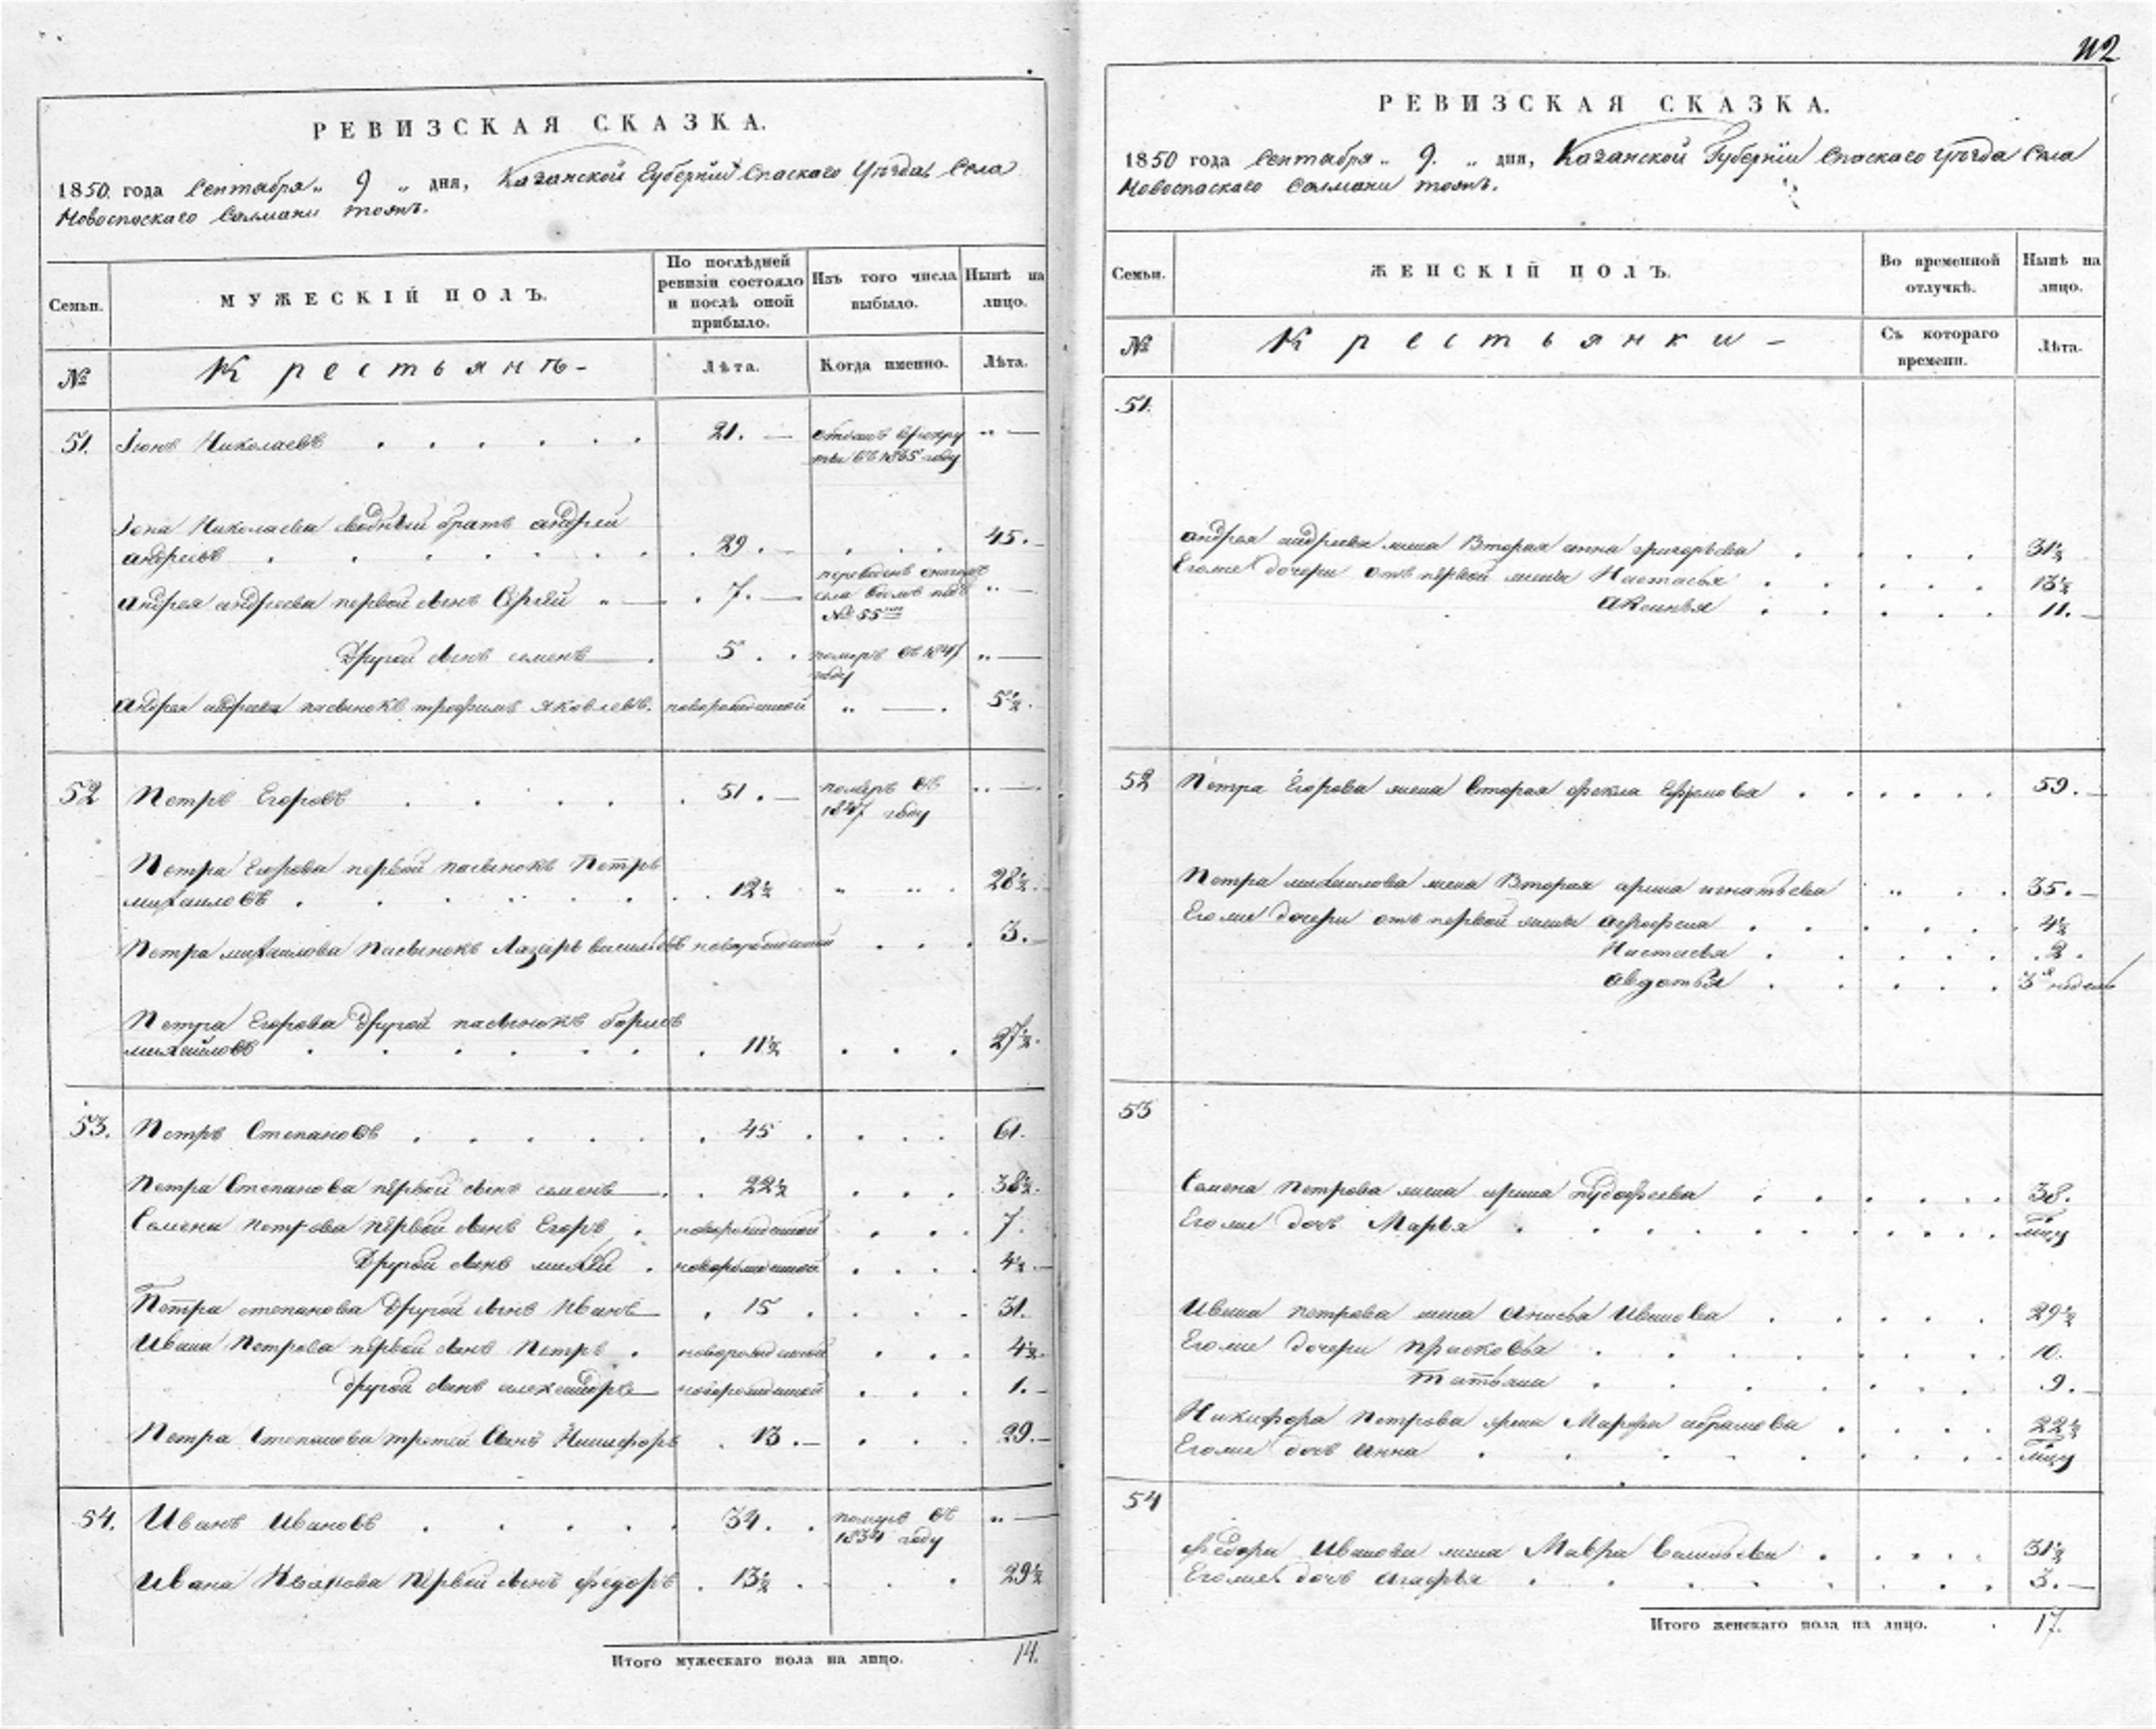 РЕВИЗСКАЯ СКАЗКА.
1850. года Сентября „ 9 „ дня, Казанской Губернiи Спаскаго Уѣзда Села
Новоспаскаго Салманы тожъ.
Семьи.
МУЖЕСКIЙ ПОЛЪ.
По послѣдней
ревизiи состояло
и послѣ оной
прибыло.
Изъ того числа
выбыло.
Нынѣ на
лицо.
№
Крестьянъ -
Лѣта.
Когда именно.
Лѣта.
51. Iонъ Николаевъ . . . . . . 21. — отданъ въ рекру „ —
ты въ 1845 году
Iона Николаева сводный братъ андрей
андреевъ . . . . . . . 29. — . . . 45. —
андрея андреева первой сынъ Сергѣй „ — . 7. — переведенъ „ —
села подъ
№ 55
Другой сынъ семенъ — . 5 . . померъ въ 1841 „ —
году
андрея андреева пасынокъ трофимъ яковлевъ. новорожденной „ — . 5½.
52 Петръ Егоровъ . . . . . 51. — померъ въ „ —
1847 году
Петра Егорова первой пасынокъ Петръ
михаиловъ . . . . . . . . 12½ „ „ . 28½.
Петра михаилова пасынокъ Лазарь васильевъ новорожденной . . . 3. —
Петра Егорова Другой пасынокъ борисъ
михайловъ . . . . . . . . 11½ . . . 27½.
53. Петръ Степановъ . . . . . . 45 . . . . 61.
Петра Степанова первой сынъ семенъ — . . 22½ . . . 38½.
Семена петрова первой сынъ Егоръ . новорожденной . . . 7.
Другой сынъ михей . новорожденной . . . . 4½ —
Петра степанова Другой сынъ Иванъ — . 15 . . . . 31.
Ивана Петрова первой сынъ Петръ . новорожденной . . . 4½.
другой сынъ александръ — новорожденной . . . 1. —
Петра Степанова третей Сынъ Никифоръ . 13. — . . . 29. —
54. Иванъ Ивановъ . . . . . . 34. . померъ въ „ —
1834 году
Ивана Иванова Первой сынъ федоръ . 13½ . . . 29½
Итого мужескаго пола на лицо. 14.
112
РЕВИЗСКАЯ СКАЗКА.
1850 года Сентября „ 9. „ дня, Казанской Губернiи Спаскаго Уѣзда Села
Новоспаскаго Салманы тожъ.
Семьи.
ЖЕНСКIЙ ПОЛЪ.
Во временной
отлучкѣ.
Нынѣ на
лицо.
№
Крестьянки -
Съ котораго
времени.
Лѣта.
51.
андрея андреева жена Вторая анна григорьева . . . . 31½
Егоже дочери отъ первой жены Настасья . . . . . 13½
аксинья . . . . . 11. —
52 Петра Егорова жена Вторая фекла Ефремова . . . . . . 59. —
Петра михаилова жена Вторая арина игнатьева „ . . 35. —
Егоже дочери отъ первой жены агрофена . . . . . . 4½
Настасья . . . . . 2 .
авдотья . . . . . 3 недель
53
Семена Петрова жена ирина . . . . . . 38.
Егоже дочь Марья . . . . . . . . . мцу
Ивана петрова жена Анисья Иванова . . . . . 29½
Егоже дочери прасковья . . . . . . 10.
татьяна . . . . . . . 9. —
Никифора Петрова жена Марфа абрамова . . . . 22½
Егоже дочь анна . . . . . . . . мцу
54
федора Иванова жена Мавра Васильева . . . . . 31½
Егоже дочь агафья . . . . . . . . 3. —
Итого женскаго пола на лицо. . 17.